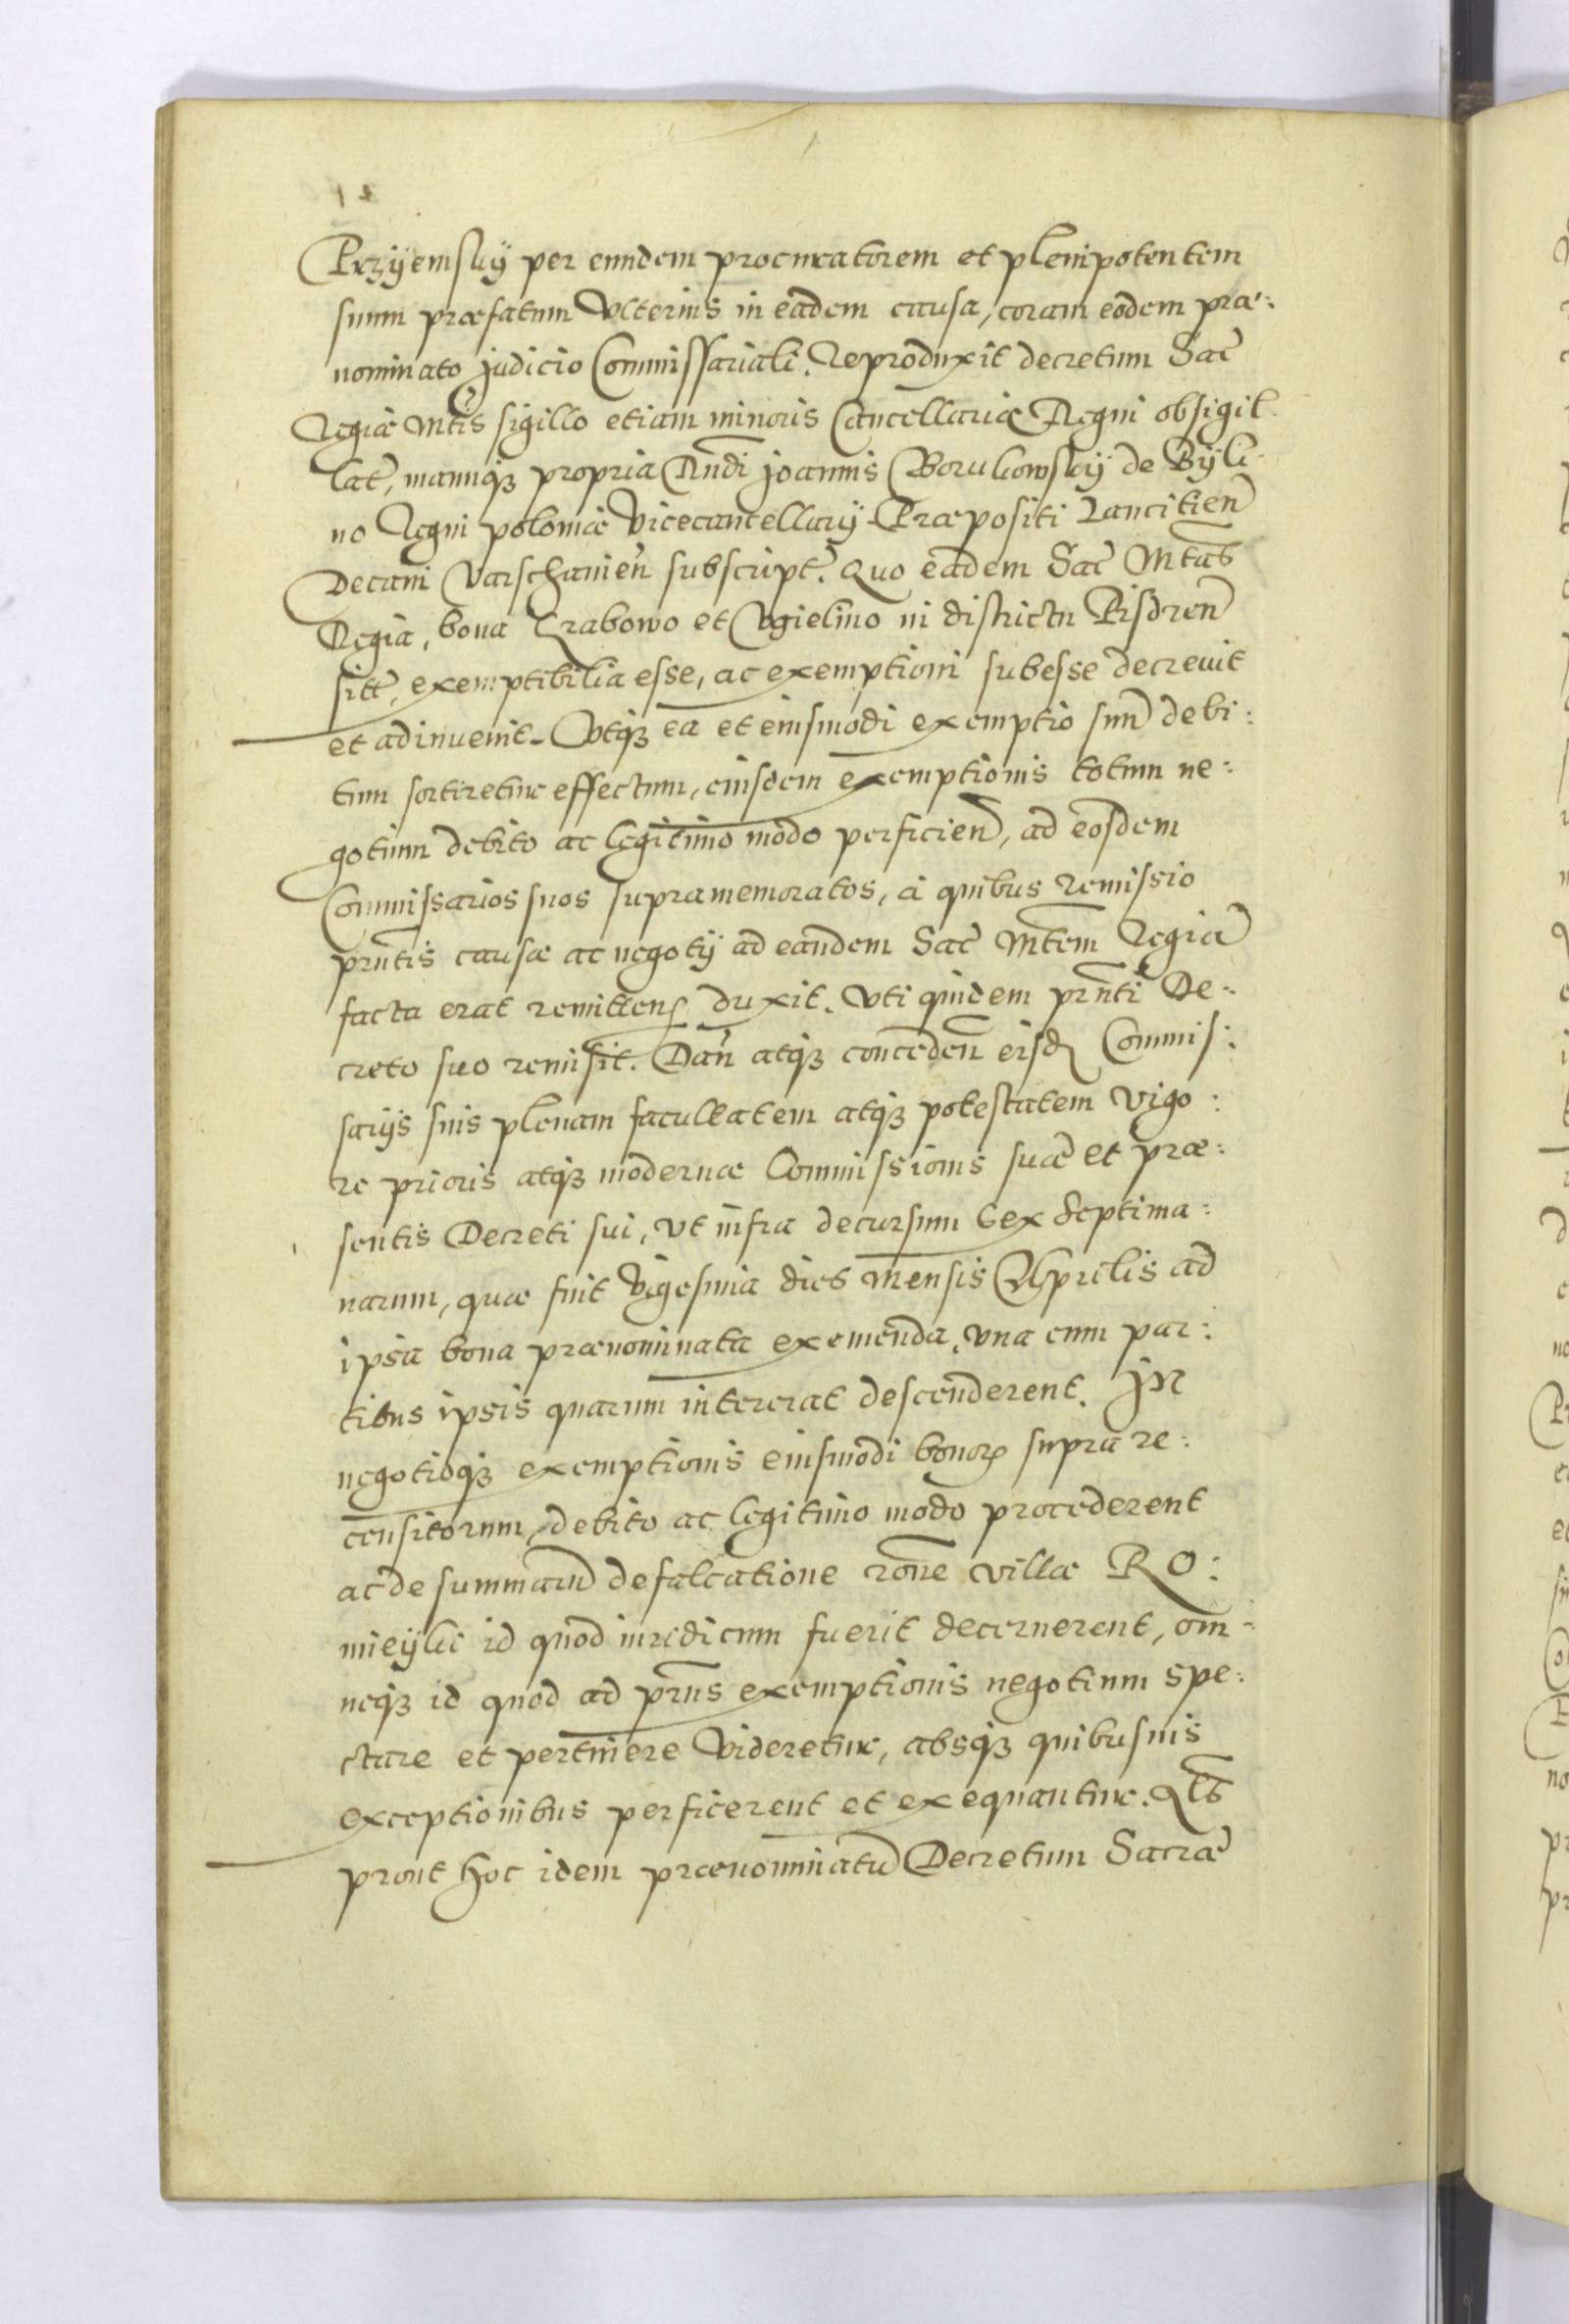 Przÿemskÿ per eundem procuratorem et plenipotentem
suum præfatum Vlterius in eadem causa, coram eodem præ:
nominato judicio Commissariali. Reproduxit decretum Sac̃
Regiæ Mtis sigillo etiam minoris Cancellariæ Regni obsigil
lat̃, manuqȝ propria Rñdi joannis Borukowskÿ de Bÿli:
no Regni poloniæ Vicecancellarÿ Præpositi Lancitieñ
Decani Varschanieñ subscript̃. Quo eadem Sac̃ Mtas
Regia, bona Grabowo et Vgielino in districtu Pisdreñ
sitt̃, exemptibilia esse, ac exemptioni subesse decreuit
et adinuenit. Vtqȝ ea et eiusmodi exemptio suũ debi:
tum sortiretur effectum, eiusdem exemptionis totum ne:
gotium debito ac legitimo modo perficieñ, ad eosdem
Commissarios suos supramemoratos, a quibus remissio
prñtis causæ ac negotÿ ad eandem Sac̃ Mtem Regiã
facta erat remitteñ duxit. Vti quidem prñti De:
creto suo remisit. Dañ atqȝ concedeñ eisd̃ Commis:
sarÿs suis plenam facultatem atqȝ potestatem vigo:
re prioris atqȝ modernæ Commissionis suæ et præ:
sentis Decreti sui, vt infra decursum sex septima:
narum, quæ fuit Vigesima dies mensis Aprilis ad
ipsa bona prænominata exemenda, vna cum par:
tibus ipsis quarum intererat descenderent. jn
negotioqȝ exemptionis eiusmodi bonorꝝ supra re:
censitorum, debito ac legitimo modo procederent
ac de summarũ defalcatione rõne villæ RO:
mieÿki id quod iuridicum fuerit decernerent, om:
neqȝ id quod ad prñs exemptionis negotium spe:
ctare et pertinere videretur, absqȝ quibusuis
exceptionibus perficerent et exequantur.
prout hoc idem prænominatũ Decretum Sacræ